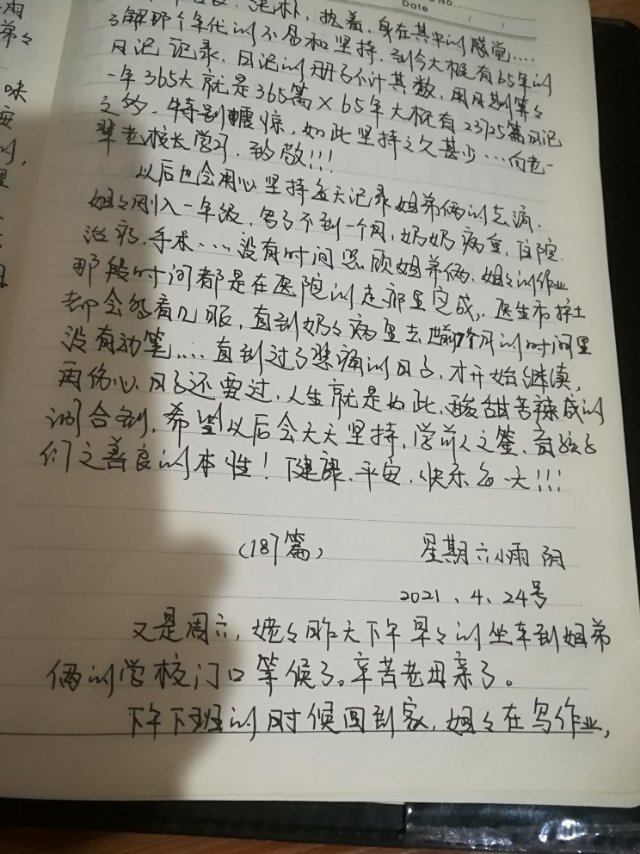 No.
Date
泥朴、执着、身在其中的感觉....
了解那个年代的不易和坚持,到今大概有65年的
日记记录,日记的册子不计其数,用月划算々
一年365天就是365篇×65年大概有23725篇日记
之多,特别震惊,如此坚持之久甚少...向老一
辈老校长学习,致敬!!!
以后也会用心坚持每天记录姐弟俩的点滴.
姐々刚入一年级,写了不到一个月,奶奶病重,住院.
治疗.手术....没有时间照顾姐弟俩.姐々的作业
那段时间都是在医院的走廊里完成,医生和护士
都会多看几眼,直到奶々病重去世前个月的时间里
没有动笔....直到过了悲痛的日子,才开始继续,
再伤心.日子还要过,人生就是如此、酸甜苦辣咸的
调合剂,希望以后会天天坚持,学前人之鉴,育孩子
们之善良的本性!健康、平安、快乐每一天!!!
(187篇) 星期六小雨 阴
2021、4、24号
又是周六,姥々昨天下午早々的坐车到姐弟
俩的学校门口等候了。辛苦老母亲了。
下午下班的时候回到家,姐々在写作业,